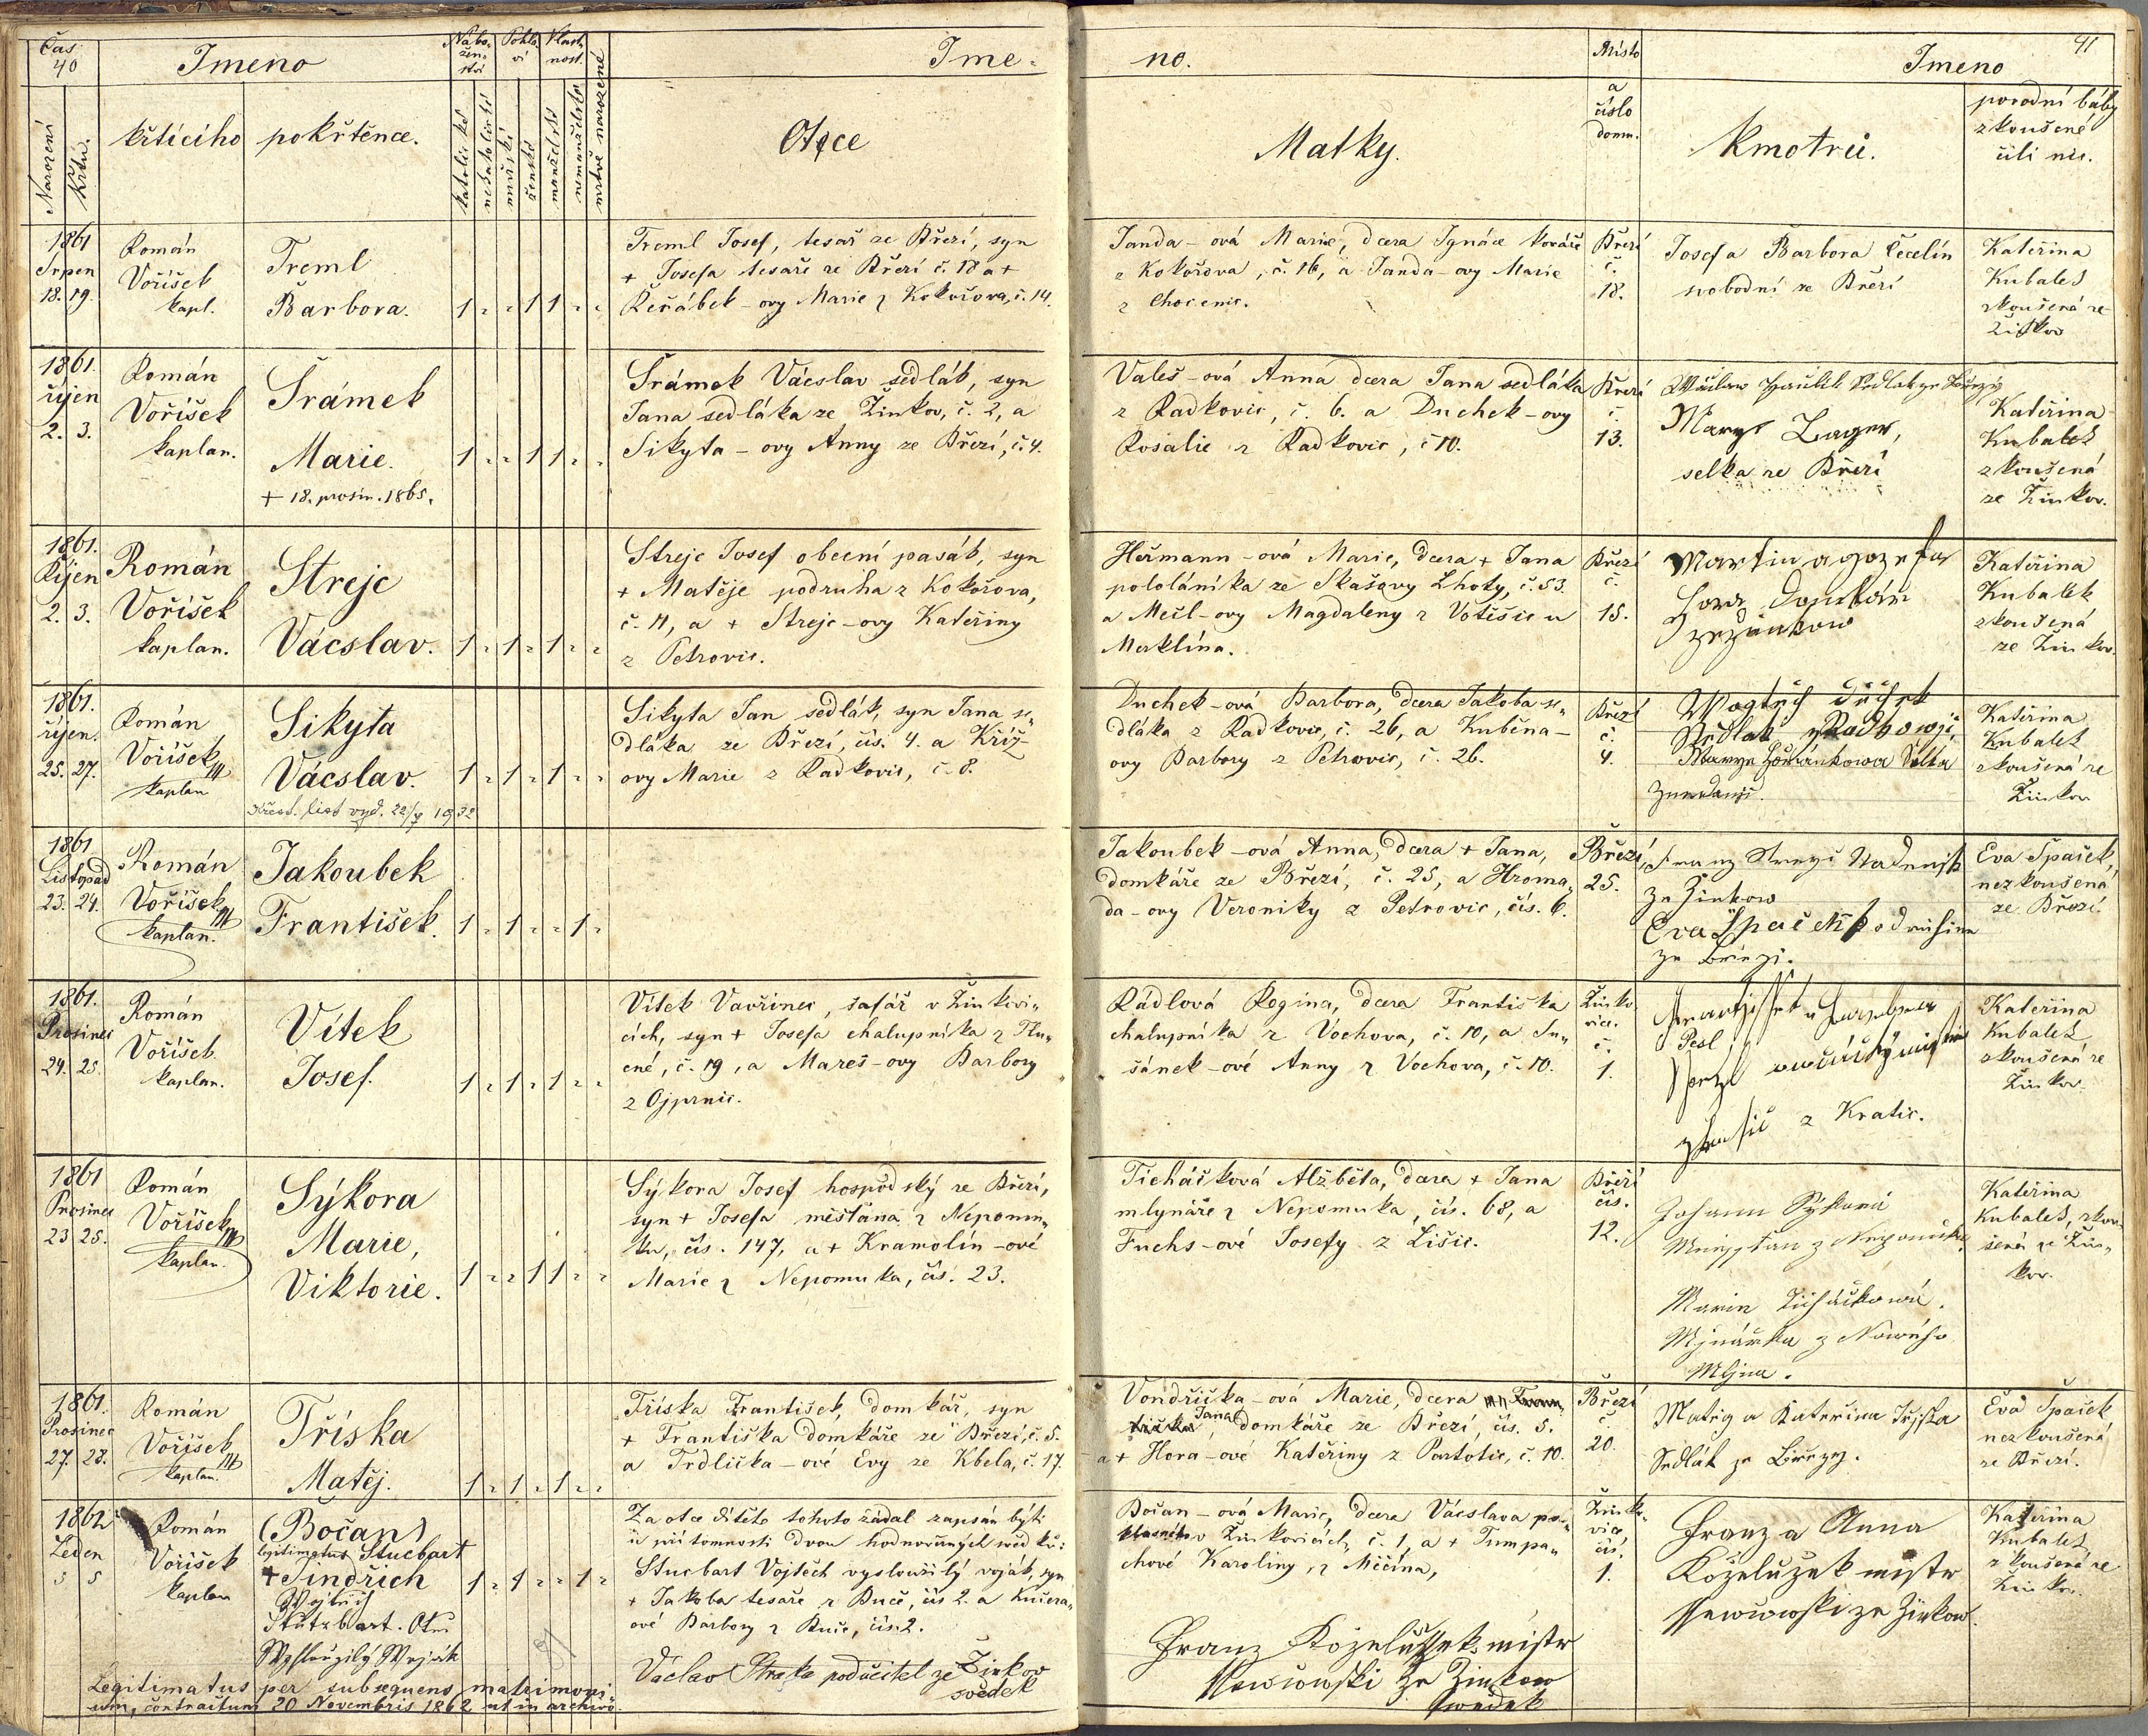 Čas
40
Jmeno
Nábo-
žen-
ství
Pohla
ví
Vlast-
nost.
Jme-
no.
Místo
a
číslo
domu.
Jmeno
41
Narození
Křtu.
křtícího
pokřtěnce.
katolické
nekatolické
mužské
ženské
manželské
nemanželské
mrtvě narozené
Otce
Matky.
Kmotrů.
porodní báby
zkoušené
čili nic.
1861
Srpen
18. 19.
Román
Voříšek
kapl.
Treml
Barbora.
1 " " 1 1 " "
Treml Josef, tesař ze Březí, syn
+ Josefa tesaře ze Březí č. 18 a +
Řeřábek-ovy Marie z Kokořova, č. 14.
Janda-ová Marie, dcera Ignáce kováře
z Kokořova, č. 16, a Janda-ovy Marie
z Chocenic.
Březí
č.
18.
Josef a Barbora Čečelín
svobodní ze Březí
Kateřina
Kubaleš
zkoušená ze
Žinkov
1861.
říjen
2. 3.
Román
Voříšek
kaplan.
Šrámek
Marie.
+ 18. prosin. 1865.
1 " " 1 1 " "
Šrámek Vácslav sedlák, syn
Jana sedláka ze Žinkov, č. 2, a
Sikyta-ovy Anny ze Březí, č. 4.
Valeš-ová Anna dcera Jana sedláka
z Radkovic, č. 6. a Duchek-ovy
Rosalie z Radkovic, č 10.
Březí
č.
13.
Marye
selka ze Březí
Kateřina
Kubaleš
zkoušená
ze Žinkov.
1861.
Říjen
2. 3.
Román
Voříšek
kaplan.
Strejc
Vácslav.
1 " 1 " 1 " "
Strejc Josef obecní pasák, syn
+ Matěje podruha z Kokořova,
č. 11, a + Strejc-ovy Kateřiny
z Petrovic.
Heřmann-ová Marie, dcera + Jana
pololáníka ze Skašovy Lhoty, č. 53.
a Mečl-ovy Magdaleny z Votěšic u
Merklína.
Březí
č.
15.
Martin a Jozefa
Kateřina
Kubalek
zkoušená
ze Žinkov.
1861.
říjen.
25. 27.
Román
Voříšek
kaplan
Sikyta
Vácslav.
Křest. list vyd. 22/7 1932
1 " 1 " 1 " "
Sikyta Jan sedlák, syn Jana se-
dláka ze Březí, čís. 4. a Kříž-
ovy Marie z Radkovic, č. 8.
Duchek-ová Barbora, dcera Jakoba se-
dláka z Radkovic, č. 26, a Kuběna-
ovy Barbory z Petrovic, č. 26.
Březí
č.
4.
Kateřina
Kubaleš
zkoušená ze
Žinkov
1861
Listopad
23. 24.
Román
Voříšek
kaplan.
Jakoubek
František.
1 " 1 " " 1 "
Jakoubek-ová Anna, dcera + Jana,
domkáře ze Březí, č. 25, a Hroma-
da-ovy Veroniky z Petrovic, čís. 6.
Březí
25.
ze Žinkow
Eva Špaček
ze Březi.
Eva Špaček,
nezkoušená
ze Březí.
1861.
Prosinec
24. 25.
Román
Voříšek
kaplan.
Vítek
Josef.
1 " 1 " 1 " "
Vítek Vavřinec, šafář v Žinkovi-
cích, syn + Josefa chalupníka z Tlu-
cné, č. 19, a Mareš-ovy Barbory
z Ojprnic.
Rádlová Regina, dcera Františka
chalupníka z Vochova, č. 10, a Ju-
šánek-ové Anny z Vochova, č. 10.
Žinko-
vice.
č.
1.
Pesl
z Kratic.
Kateřina
Kubaleš
zkoušená ze
Žinkov.
1861
Prosinec
23 25.
Román
Voříšek
kaplan.
Sýkora
Marie,
Viktorie.
1 " " 1 1 " "
Sýkora Josef hospodský ze Březí,
syn + Josefa měšťana z Nepomu-
ku, čís. 147, a + Kramolín-ové
Marie z Nepomuka, čís. 23.
Ticháčková Alžběta, dcera + Jana
mlynáře z Nepomuka, čís. 68, a
Fuchs-ové Josefy z Lišic.
Březí
čís.
12.
Johann Sykora
z Nepomuka
Marie Ticháčkowá.
Mlynářka z Nowého
Mlýna.
Kateřina
Kubaleš, zkou-
šená ze Žin-
kov.
1861.
Prosinec
27. 28.
Román
Voříšek
kaplan.
Tříska
Matěj.
1 " 1 " 1 " "
Tříska František, domkář, syn
+ Františka domkáře ze Březí, č. 5.
a Trdlička-ové Evy ze Kbela, č. 17.
Vondřička-ová Marie, dcera Fran-
tiška Jana domkáře ze Březí, čís. 5.
a + Hora-ové Kateřiny z Partotic, č. 10.
Březí
č.
20.
Matěg a Kateřina
Sedlák ze Březy.
Eva Špaček
nezkoušená
ze Březí.
1862
Leden
5 5
Román
Voříšek
kaplan
(Bočan)
legitimatus Stucbart
+ Jindřich
Wojtěch
Stutzbart. Otec
Wysloužilý Woják
1 " 1 " " 1 "
Za otce dítěte tohoto žádal zapsán býti
u přítomnosti dvou hodnověrných svědků:
Stucbart Vojtěch vysloužilý voják, syn
+ Jakoba tesaře z Buče, čís 2. a Kučera-
ové Barbory z Buče, čís. 2.
Václav Straka podučitel ze Žinkov
svědek
Bočan-ová Marie, dcera Vácslava
v Žinkovicích, č. 1, a + Tumpa-
chové Karoliny, z Měčína,
Franz Koželužek mistr
ze Žinkow
swedek
Žinko-
vice,
čís.
1.
Franz a Anna
Koželužek mistr
ze Žinkow.
Kateřina
Kubaleš,
zkoušená ze
Žinkov.
Legitimatus per subsequens matrimoni-
um, contractum 20 Novembris 1862 ut in archivo.